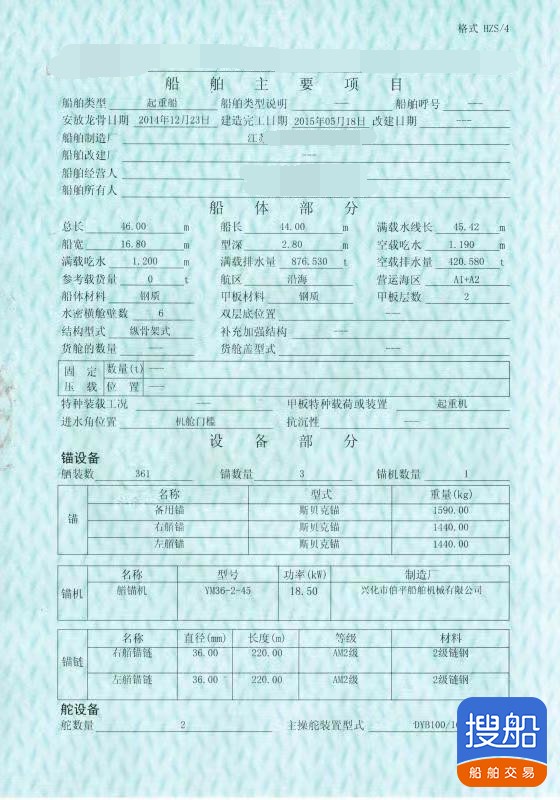 格式 HZS/4
船 舶 主 要 项 目
船舶类型 起重船 船舶类型说明 --- 船舶呼号 ---
安放龙骨日期 2014年12月23日 建造完工日期 2015年05月18日 改建日期 ---
船舶制造厂 江苏
船舶改建厂 ---
船舶经营人
船舶所有人
船 体 部 分
总长 46.00 m 船长 44.00 m 满载水线长 45.42 m
船宽 16.80 m 型深 2.80 m 空载吃水 1.190 m
满载吃水 1.200 m 满载排水量 876.530 t 空载排水量 420.580 t
参考载货量 0 t 航区 沿海 营运海区 A1+A2
船体材料 钢质 甲板材料 钢质 甲板层数 2
水密横舱壁数 6 双层底位置 ---
结构型式 纵骨架式 补充加强结构 ---
货舱的数量 --- 货舱盖型式 ---
固 定 数量(t) ---
压 载 位 置 ---
特种装载工况 --- 甲板特种载荷或装置 起重机
进水角位置 机舱门槛 抗沉性 ---
设 备 部 分
锚设备
舾装数 361 锚数量 3 锚机数量 1
名称 型式 重量(kg)
锚 备用锚 斯贝克锚 1590.00
右艏锚 斯贝克锚 1440.00
左艏锚 斯贝克锚 1440.00
名称 型号 功率(kW) 制造厂
锚机 艏锚机 YM36-2-45 18.50 兴化市倍平船舶机械有限公司
名称 直径(mm) 长度(m) 等级 材料
锚链 右艏锚链 36.00 220.00 AM2级 2级链钢
左艏锚链 36.00 220.00 AM2级 2级链钢
舵设备
舵数量 2 主操舵装置型式 DYB100/1
搜船
船舶交易